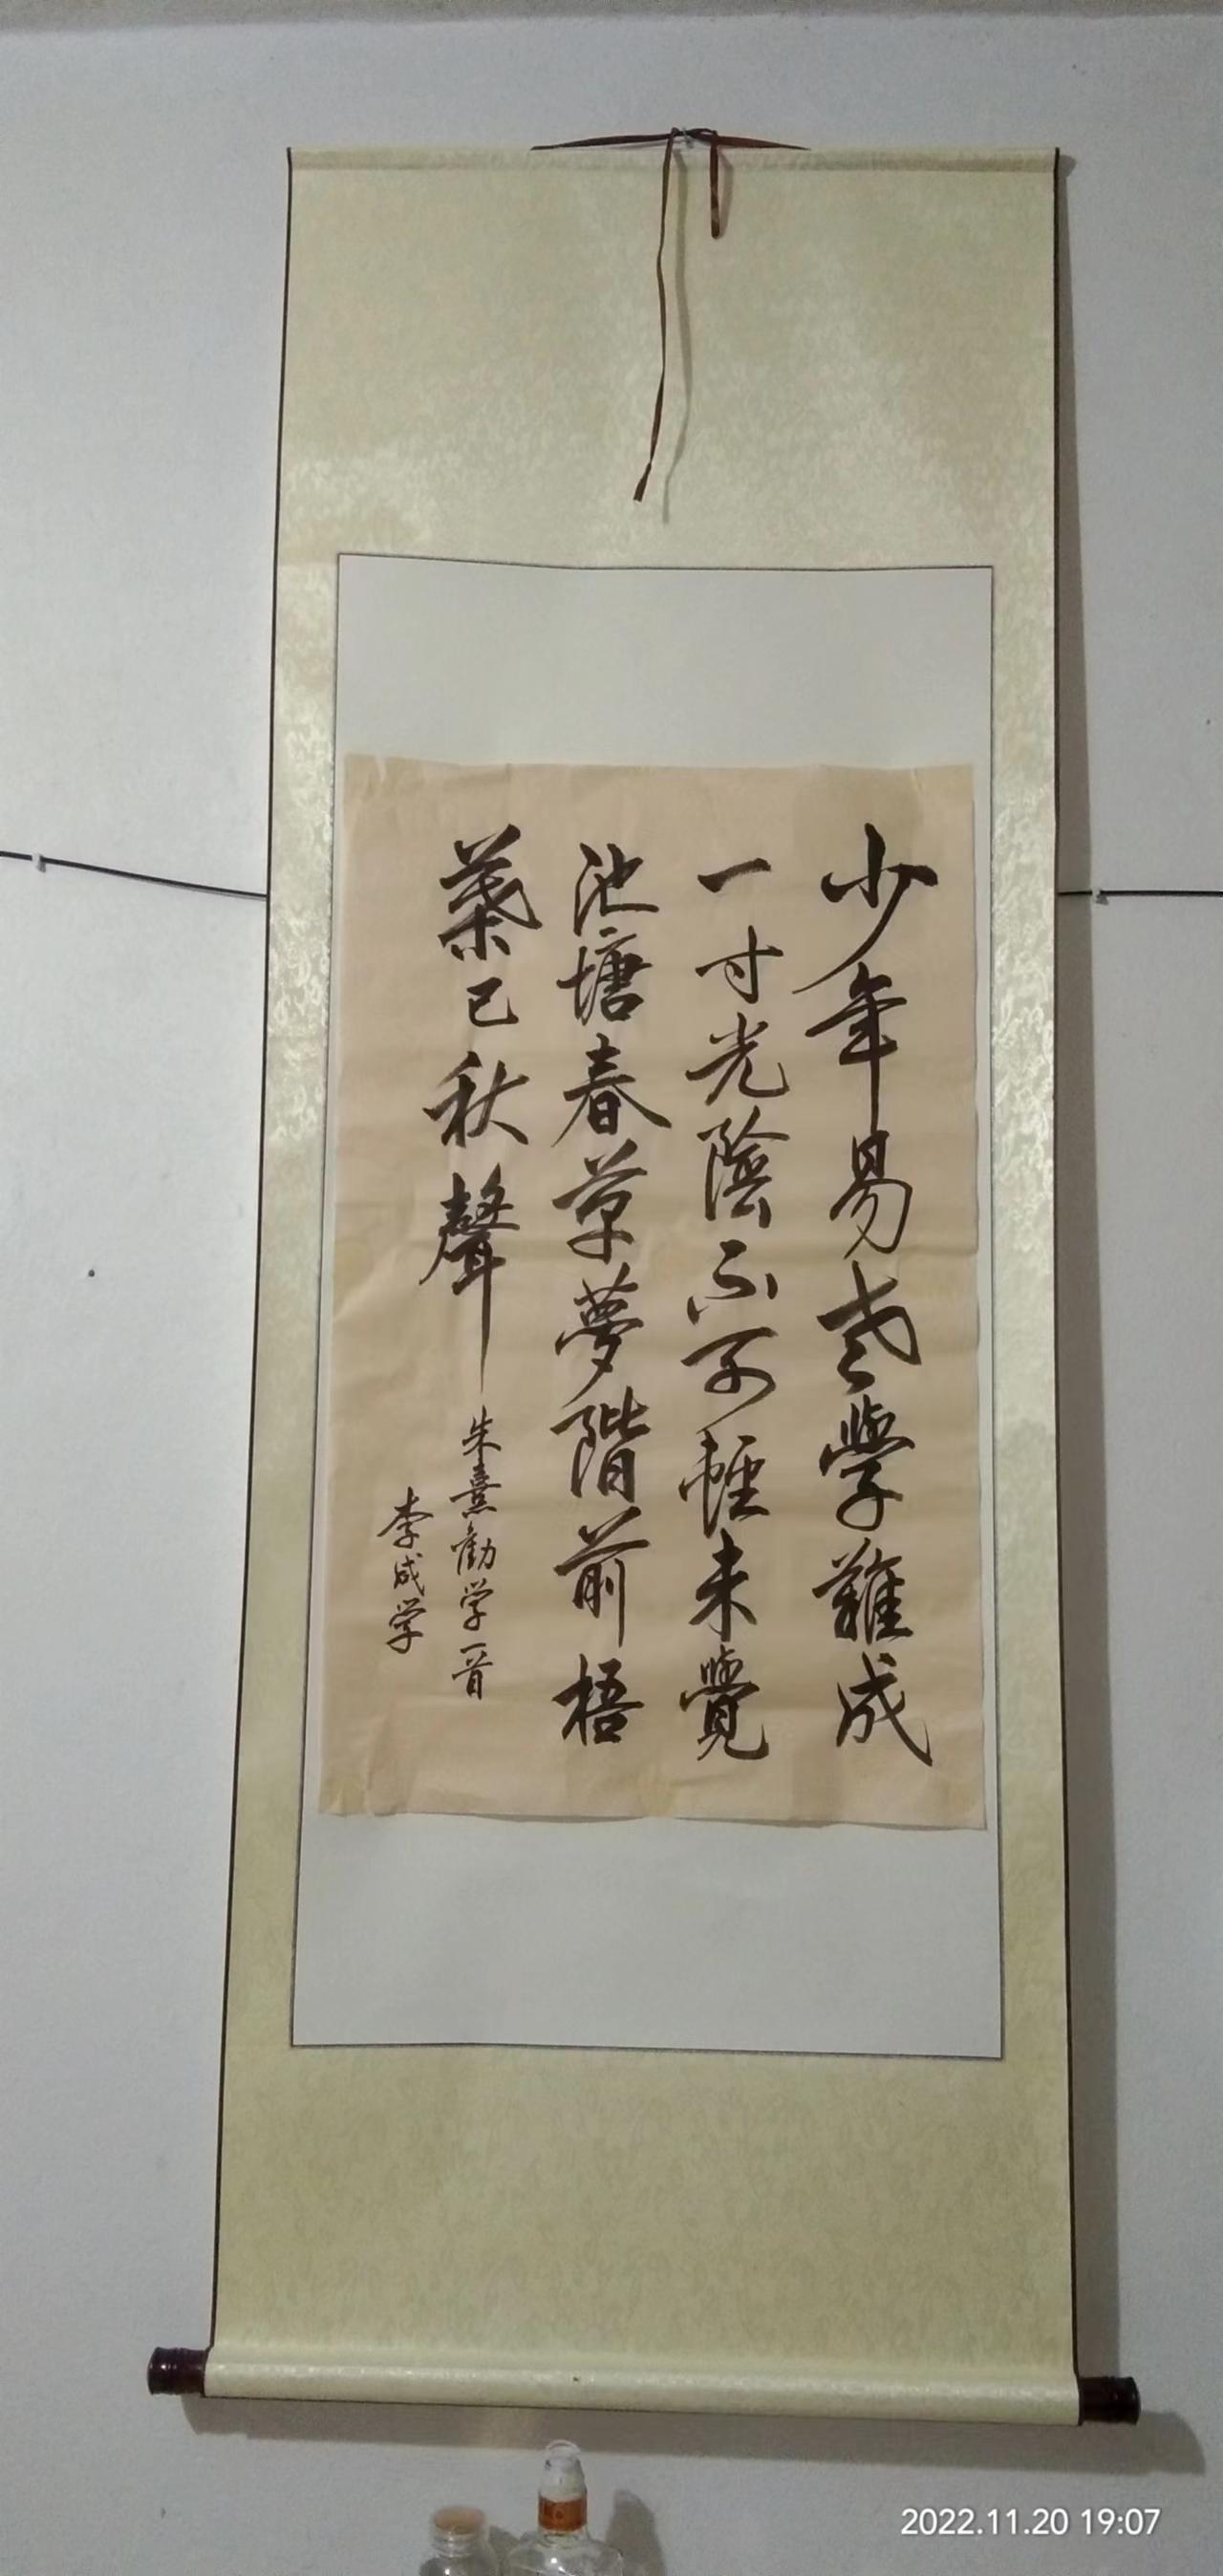 少年易老學難成
一寸光陰不可輕未覺
池塘春草夢階前梧
葉已秋聲
朱熹勸学一首
李成学
2022.11.20 19:07